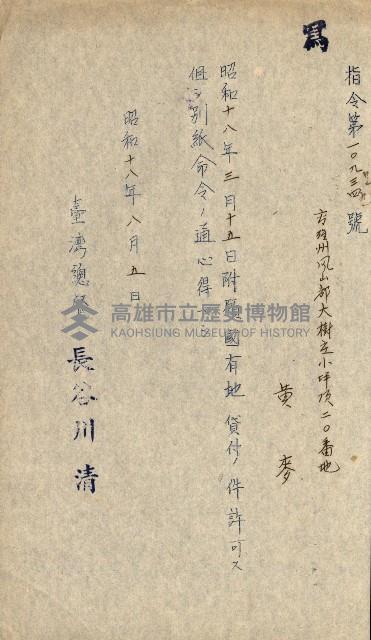 寫
指令第一〇九三四號
高雄州鳳山郡大樹庄小坪頂二〇番地
黃麥
昭和十八年三月十五日附願國有地貸付ノ件許可ス
但シ別紙命令ノ通心得ヘシ
昭和十八年八月五日
臺灣總督 長谷川清
高雄市立歷史博物館
KAOHSIUNG MUSEUM OF HISTORY